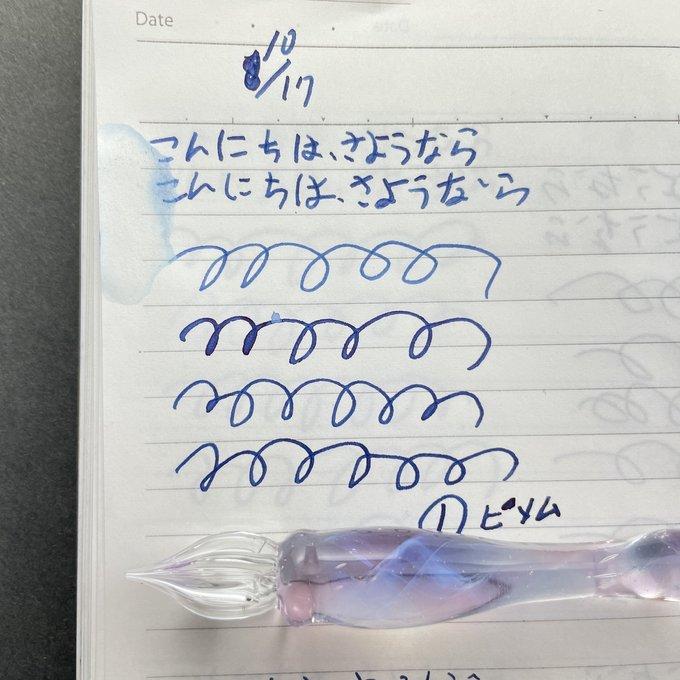 Date
10/17
こんにちは、さようなら
こんにちは、さようなら
① ピメム